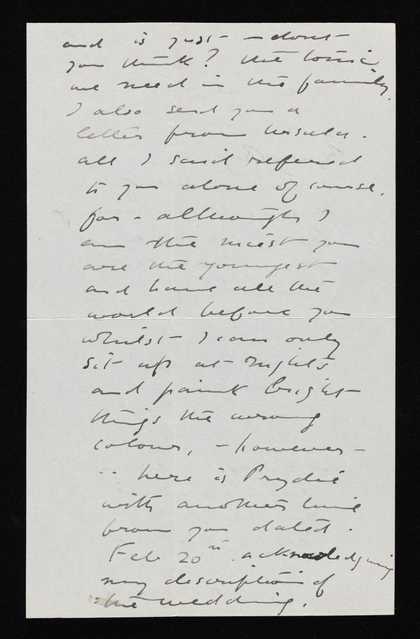 and is just — dont
you think? the tonic
we need in the family.
I also send you a
letter from Ursula.
all I said referred
to you alone of course.
for — although I
am the nicest you
are the youngest
and have all the
world before you
whilst I can only
sit up at nights
and paint bright
things the wrong
colour, — however —
.. here is Prydie
with another line
from you dated.
Feb 20th acknowledging
my description of
the wedding.